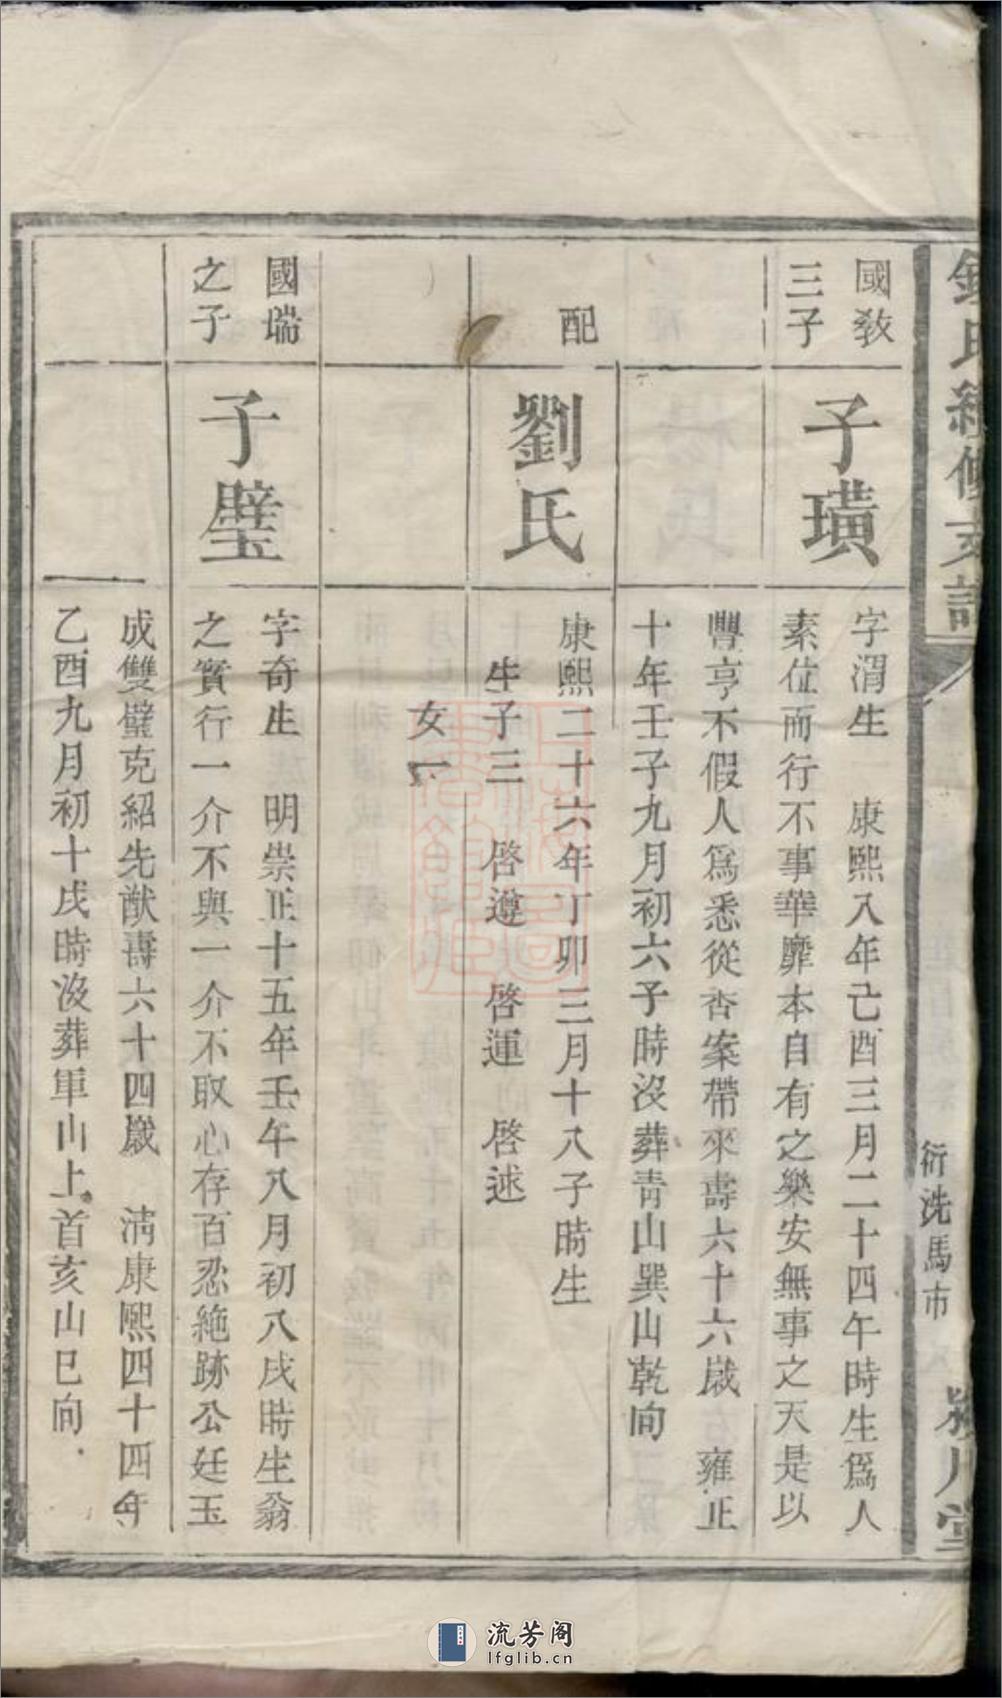 鍾氏續修支譜
衍洗馬市
潁川堂
國教
三子
子璜
字渭生 康熙八年己酉三月二十四午時生爲人
素位而行不事華靡本自有之樂安無事之天是以
豐亨不假人爲悉從杏案帶來壽六十六歲 雍正
十年壬子九月初六子時沒葬青山巽山乾向
配
劉氏
康熙二十六年丁卯三月十八子時生
生子三 啓遵 啓運 啓述
女一
國瑞
之子
子璧
字奇生 明崇正十五年壬午八月初八戌時生翁
之實行一介不與一介不取心存百忍絶跡公廷玉
成雙璧克紹先猷壽六十四歲 清康熙四十四年
乙酉九月初十戌時沒葬軍山上首亥山巳向
流芳阁
lfglib.cn